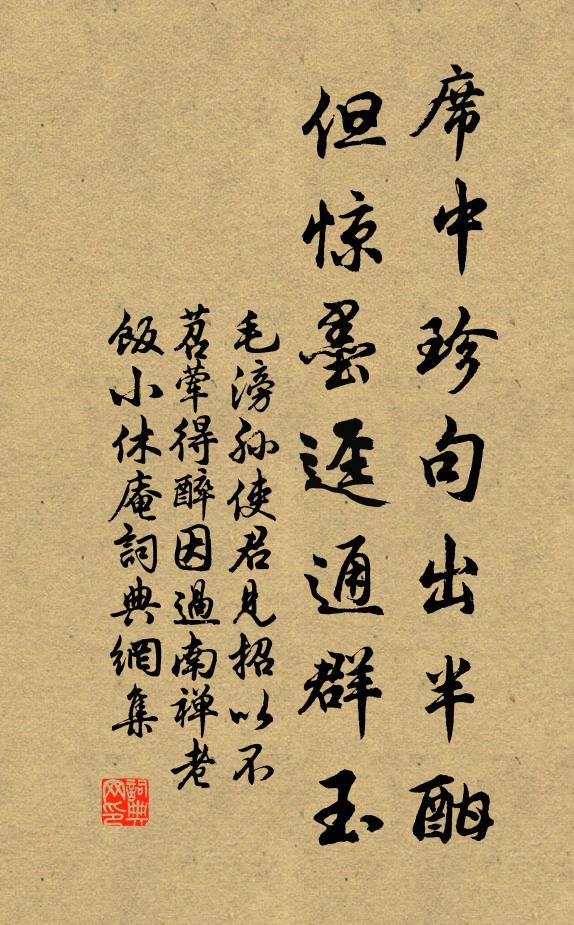 席中珍句出半酣
但惊墨迳通群玉
毛滂孙使君见招以不
茗荤得醉因過南禅老
飯小休庵詞典網集
詞典网印